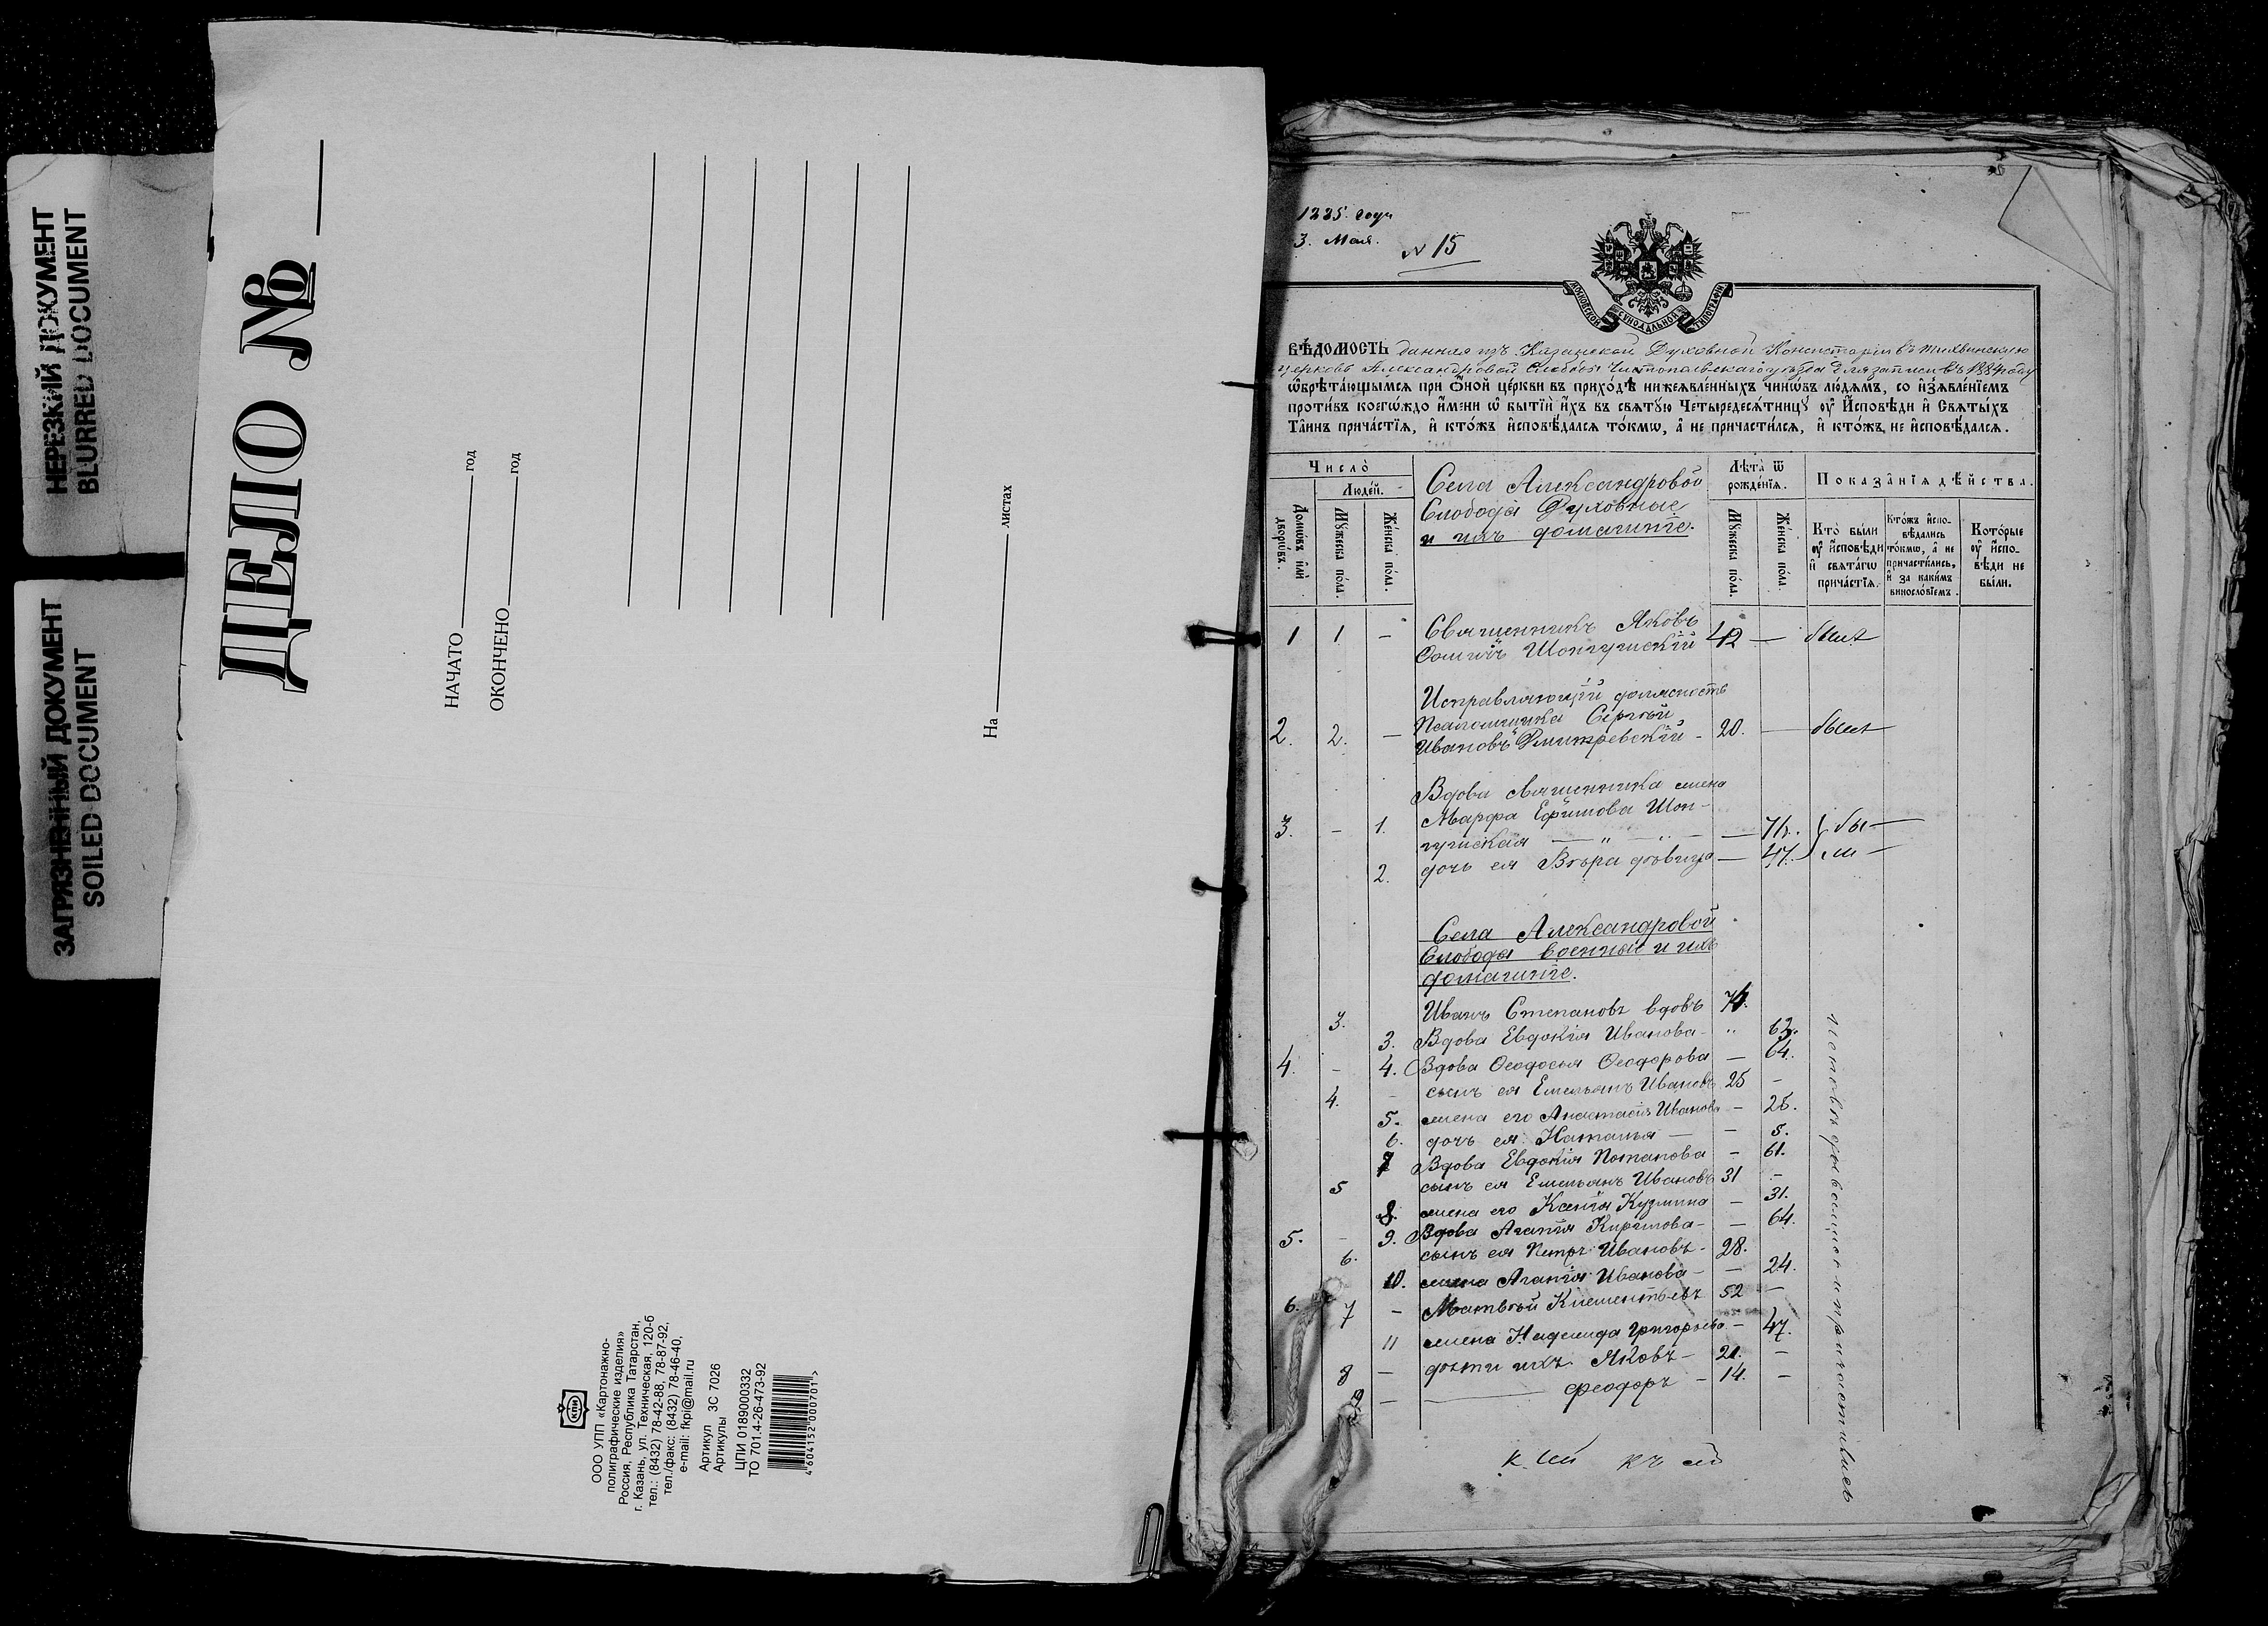 НЕРЕЗКИЙ ДОКУМЕНТ
BLURRED DOCUMENT
ЗАГРЯЗНЕННЫЙ ДОКУМЕНТ
SOILED DOCUMENT
ДЕЛО №
НАЧАТО год
ОКОНЧЕНО год
На листах
КПИ
ООО УПП «Картонажно-
полиграфические изделия»
Россия, Республика Татарстан,
г. Казань, ул. Техническая, 120-б
тел.: (8432) 78-42-88, 78-87-92,
тел./факс: (8432) 78-46-40,
e-mail: fkpi@mail.ru
Артикул ЗС 7026
Артикулы
ЦПИ 0189000332
ТО 701.4-26-473-92
4 604152 000701 >
1885. года
3. Мая.
N 15
МОСКОВСКОЙ СѴНОДАЛЬНОЙ ТИПОГРАФІИ
ВѢДОМОСТЬ данная изъ Казанской Духовной Консисторіи въ Тихвинскую
церковь Александровой Слободы Чистопольскаго уѣзда для записи въ 1884 году
ѡ҆брѣта́ющымсѧ при ѻ҆́ной це́ркви въ прихо́дѣ нижеѧвле́нныхъ чинѡ́въ лю́демъ, со и҆зъѧвле́нїемъ
проти́въ коегѡ́ждо и҆́мени ѡ҆ бытїѝ и҆́хъ въ свѧту́ю Четыредесѧ́тницꙋ ᲂу҆ И҆́сповѣди и҆ Свѧты́хъ
Та́инъ прича́стїѧ, и҆ кто́жъ и҆сповѣ́далсѧ то́кмѡ, а҆ не причасти́лсѧ, и҆ кто́жъ не и҆сповѣ́далсѧ.
Число̀
Люде́й.
Домѡ́въ и҆лѝ дворѡ́въ.
Мꙋ́жеска по́ла.
Же́нска по́ла.
Села Александровой
Слободы Духовные
и ихъ домашніе.
Лѣ́та ѿ
рожде́нїѧ.
Мꙋ́жеска по́ла.
Же́нска по́ла.
Показа̂нїѧ дѣ́йства.
Кто̀ бы́ли
ᲂу҆ и҆́сповѣди
и҆ свѧта́гѡ
прича́стїѧ.
Кто́жъ и҆спо-
вѣ́дались
то́кмѡ, а҆ не
причасти́лись,
и҆ за каки́мъ
виносло́вїемъ.
Кото́рые
ᲂу҆ и҆́спо-
вѣди не
бы́ли.
1 1 — Священникъ Яковъ
Ѳомичъ Шонгутскій 42 — былъ
Исправляющій должность
2. 2. — Псаломщика Сергѣй
Ивановъ Дмитревскій — 20. — былъ
Вдова священника жена
3. — 1. Марфа Ефимова Шон-
гутская — 74. бы-
2. дочь ея Вѣра дѣвица — 47. ли
Села Александровой
Слободы военные и ихъ
домашніе.
3. Иванъ Степановъ вдовъ 74.
3. Вдова Евдокія Иванова — „ 63.
4. — 4. Вдова Ѳеодосья Ѳеодорова — 64.
4. — сынъ ея Емельянъ Ивановъ 25 —
5. жена его Анастасія Иванова — 25.
6. дочь ея Наталья — — 5.
7 Вдова Евдокія Потапова — 61.
5 сынъ ея Емельянъ Ивановъ 31 —
8. жена его Ксенія Кузмина — 31.
5. — 9. Вдова Агапія Кирилова — — 64.
6. сынъ ея Петръ Ивановъ — 28.
10. жена Агапія Иванова — — 24.
6. 7 — Матвѣй Клементьевъ 52 —
11 жена Надежда Григорьева — 47.
8 — дѣти ихъ Яковъ — 21. —
9 — Ѳеодоръ — 14. —
исповѣдовались и причастились